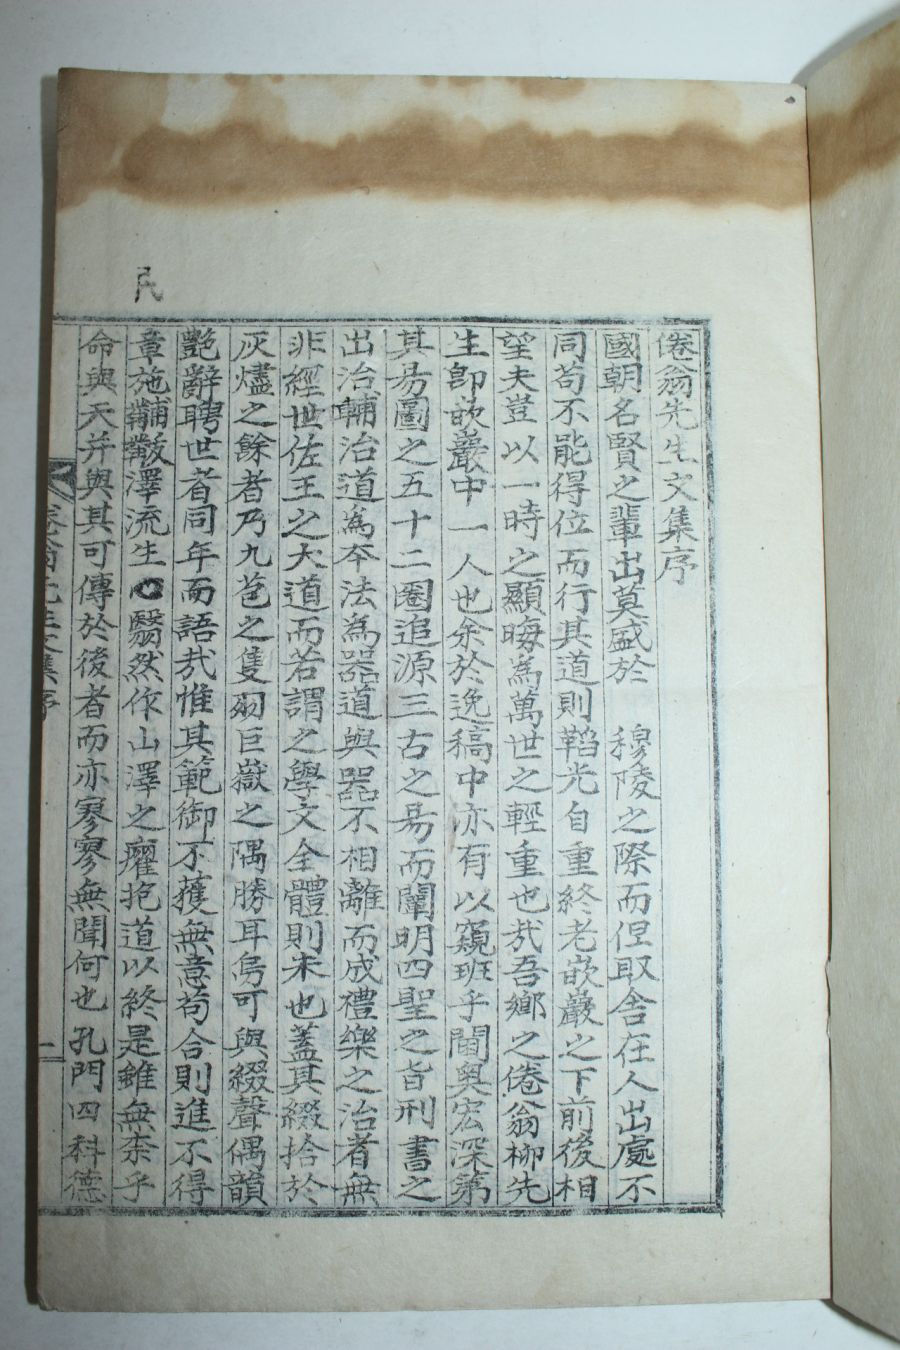 倦翁先生文集序
國朝名賢之輩出莫盛於 穆陵之際而但取舍在人出處不
同苟不能得位而行其道則韜光自重終老嵌巖之下前後相
望夫豈以一時之顯晦為萬世之輕重也哉吾鄉之倦翁柳先
生卽嵌巖中一人也余於逸稿中亦有以窺班乎閫奧宏深第
其易圖之五十二圈追源三古之易而闡明四聖之旨刑書之
出治輔治道為夲法為器道與器不相離而成禮樂之治者無
非經世佐王之大道而若謂之學文全體則未也蓋其綴拾於
灰燼之餘者乃九苞之隻羽巨嶽之隅勝耳烏可與綴聲偶韻
艶辭聘世者同年而語哉惟其範御不獲無意苟合則進不得
章施黼黻澤流生民翳然作山澤之癯抱道以終是雖無柰乎
命與天并與其可傳於後者而亦寥寥無聞何也孔門四科德
民
倦翁先生文集序
一